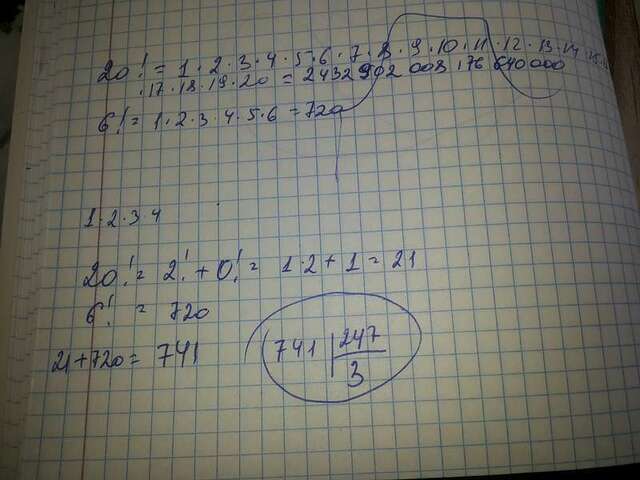 20! = 1 · 2 · 3 · 4 · 5 · 6 · 7 · 8 · 9 · 10 · 11 · 12 · 13 · 14
· 17 · 18 · 19 · 20 = 2432 902 008 176 640 000
6! = 1 · 2 · 3 · 4 · 5 · 6 = 720
1 2 · 3 · 4
20! = 2! + 0! = 1 · 2 + 1 = 21
6! = 720
21 + 720 = 741
741 | 247
3